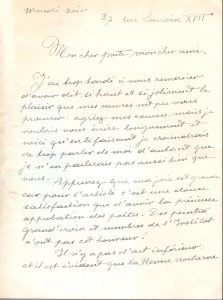 Mardi soir
37 rue Lauraine XVII
Mon cher poète, mon cher ami,
J'ai trop tardé à vous remercier
d'avoir dit, si haut et si joliment le
plaisir que mes œuvres ont pu vous
procurer: agréez mes excuses, mais je
voulais vous écrire longuement et
voici qu'en le faisant je craindrais
de trop parler de moi d'autant que
je n'en parlerais pas aussi bien que
vous.
Apprenez que ma joie est grande
car pour l'artiste c'est une douce
satisfaction que d'avoir la précieuse
approbation des poètes. Des peintres
grand'croix et membres de l'Institut
n'ont pas cet honneur.
Il n'y a pas d'art inférieur,
et il est évident que la Revue